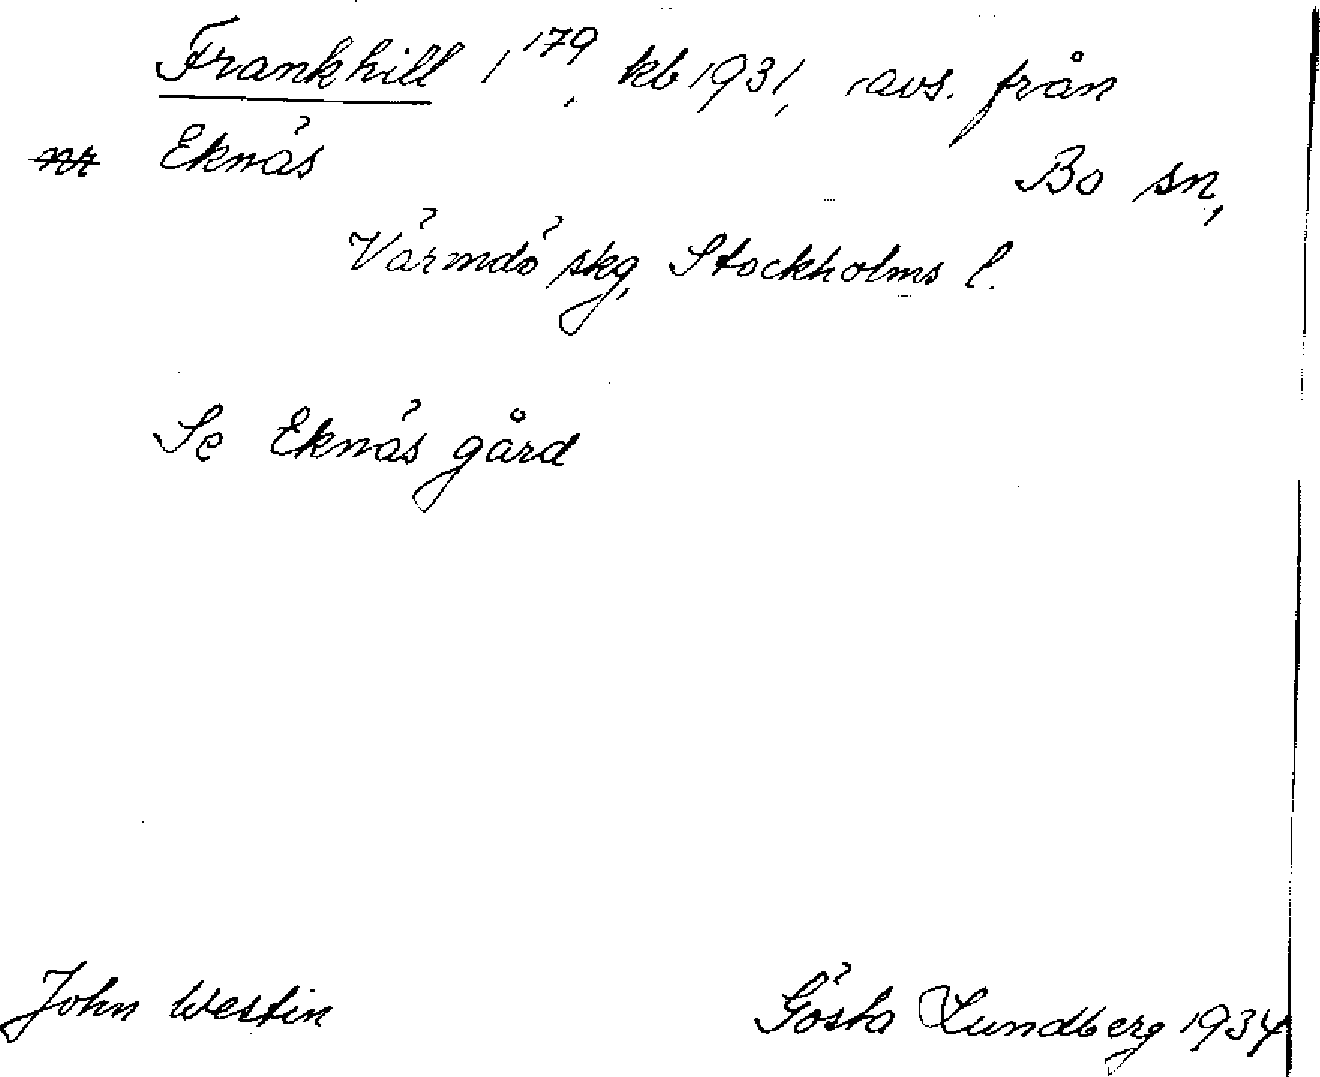 Frankhill 1¹⁷⁹, kb 1931, avs. från
nr Eknäs Bo sn,
Värmdö skg, Stockholms l.
Se Eknäs gård
John Westin Gösta Lundberg 1934